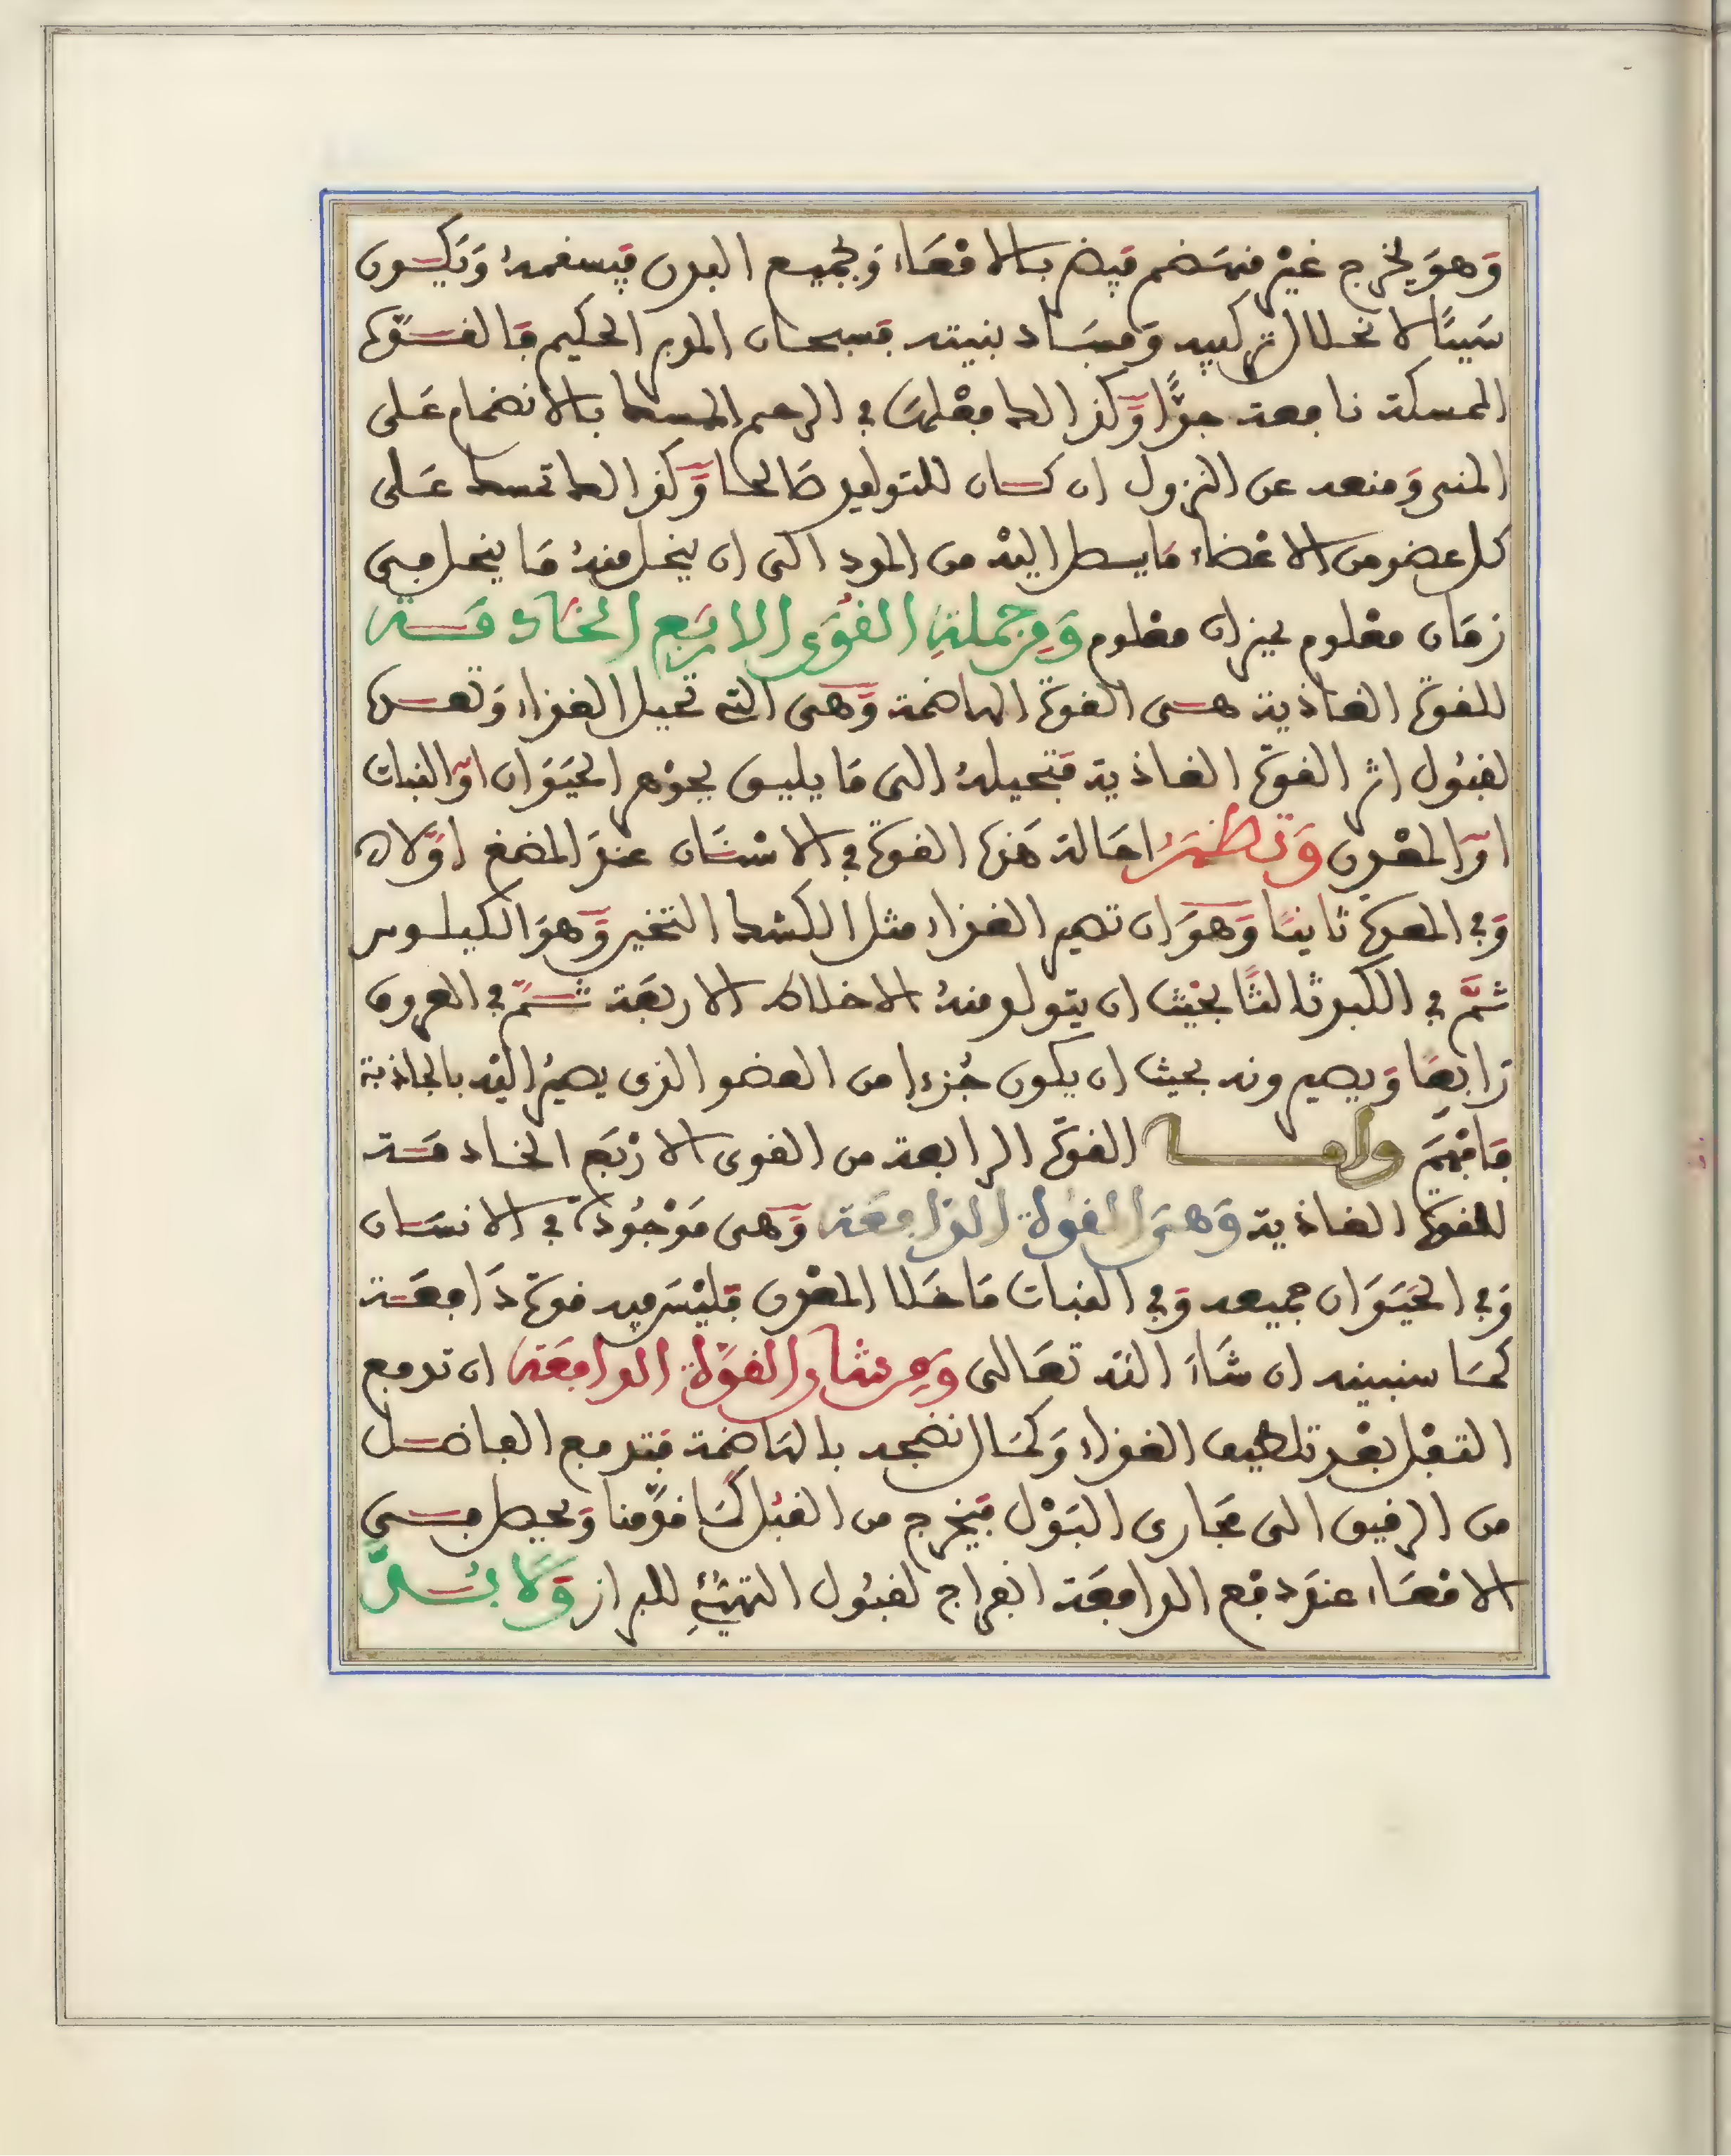 وَهوَ يخرج غيْر منهَضم فيضر بالامْعَاء وَبجميع البدن فيسقمهُ وَيَكُون
سَببًا لانحلال تركيبه وَفسَاد بنيته فسبحان المدبر الحكيم فالقوّة
الممسكة نافعة جدًّا وَكذالك فعْلهَا في الرحم الممسك بالانضمام عَلى
المني وَمنعه عن النزول ان كان للتوليد صَالحا وَكذالك تمسك عَلى
كل عضو من الاعْضاء مَا يسط اليْه من المدد الى ان ينحل منهُ مَا ينحل في
زمَان معْلوم بميزان معْلوم وَمِن جملةِ القُوَى الاربَع الخَادمَة
للقوة الغاذية هي القوة الهاضمة وَهى التي تحيل الغذاء وَتعدها
لقبُول اثر القوّة الغاذية فتحيلهُ الى مَا يليق بجوْهر الحيَوَان اوْ النبات
اوْ المعْدن وَتظهَرُ احَالة هَذه القوة في الاسْنَان عندَ المضغ اوّلا
وَفي المعدة ثانيًا وَهوَ ان تصير الغذاء مثل الكشك الثخين وَهوَ الكيلوس
ثمَّ في الكبد ثالثًا بحيْث ان يتولد منهُ الاخلاط الاربعَة ثمّ في العروق
رَابعًا وَيصيرونه بحيث ان يكون جُزءا من العضو الذى يصيرُ اليْه بالجاذبة
فافْهَمَ وامـا القوّة الرابعة من القوى الارْبَع الخادمَة
للقوة الغاذية وَهىَ القوة الدَافعَة وَهى مَوْجُودة في الانسَان
وَفي الحيَوَان جميعه وَفي النبات مَا خَلا المعْدن فليْسَ فيه قوّة دَافعَة
كمَا سنبينه ان شَاءَ اللّه تعَالى وَمِن شان القوّة الدافعَة ان تدفع
الثفْل بعْد تلطيف الغذاء وَكمَال نضجه بالهَاضمة فتدفع الفاضل
من الرقيق الى مجَارى البَوْل فيَخرج من القبُل كمَا قدّمنا وَيحصل في
الامْعَاء عندَ دفع الدافعَة انفراج لقبُول التهيُّئِ للبراز وَلا بُدَّ